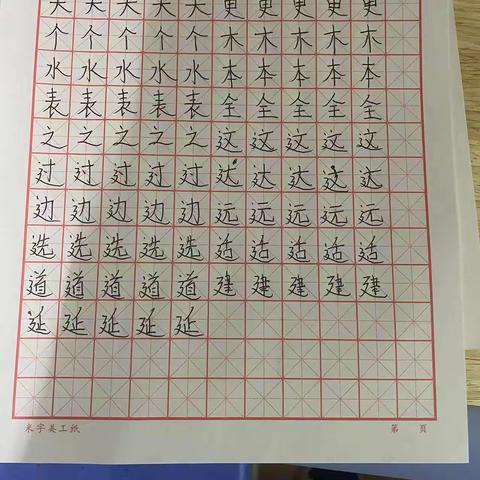 大大大大大更更更更更
个个个个个木木木木木
水水水水水本本本本本
表表表表表全全全全全
之之之之之这这这这这
过过过过过达达达达达
边边边边边远远远远远
选选选选选适适适适适
道道道道道建建建建建
延延延延延
米字美工纸 第 頁